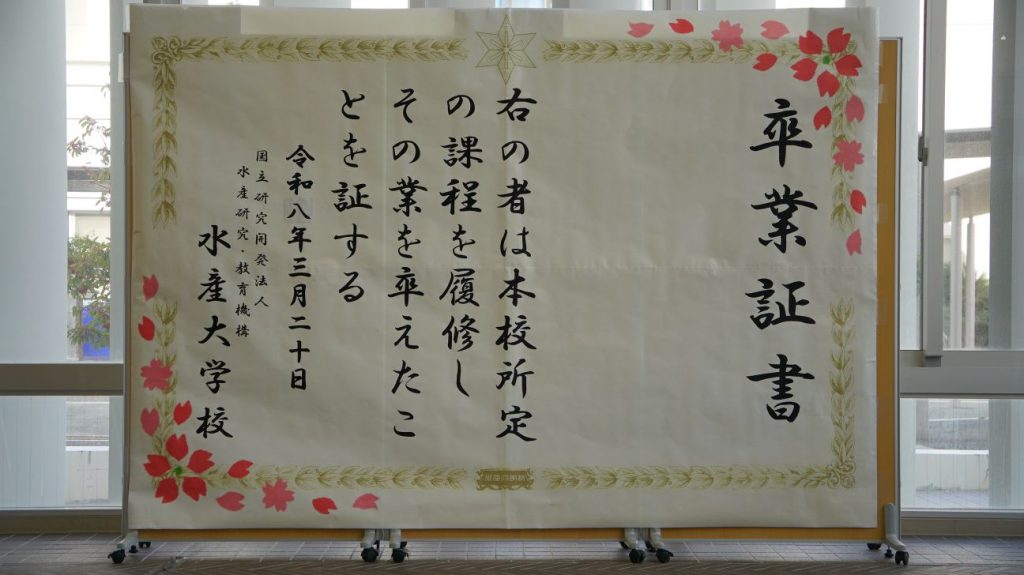 卒業証書
右の者は本校所定
の課程を履修し
その業を卒えたこ
とを証する
令和八年三月二十日
国立研究開発法人
水産研究・教育機構
水産大学校